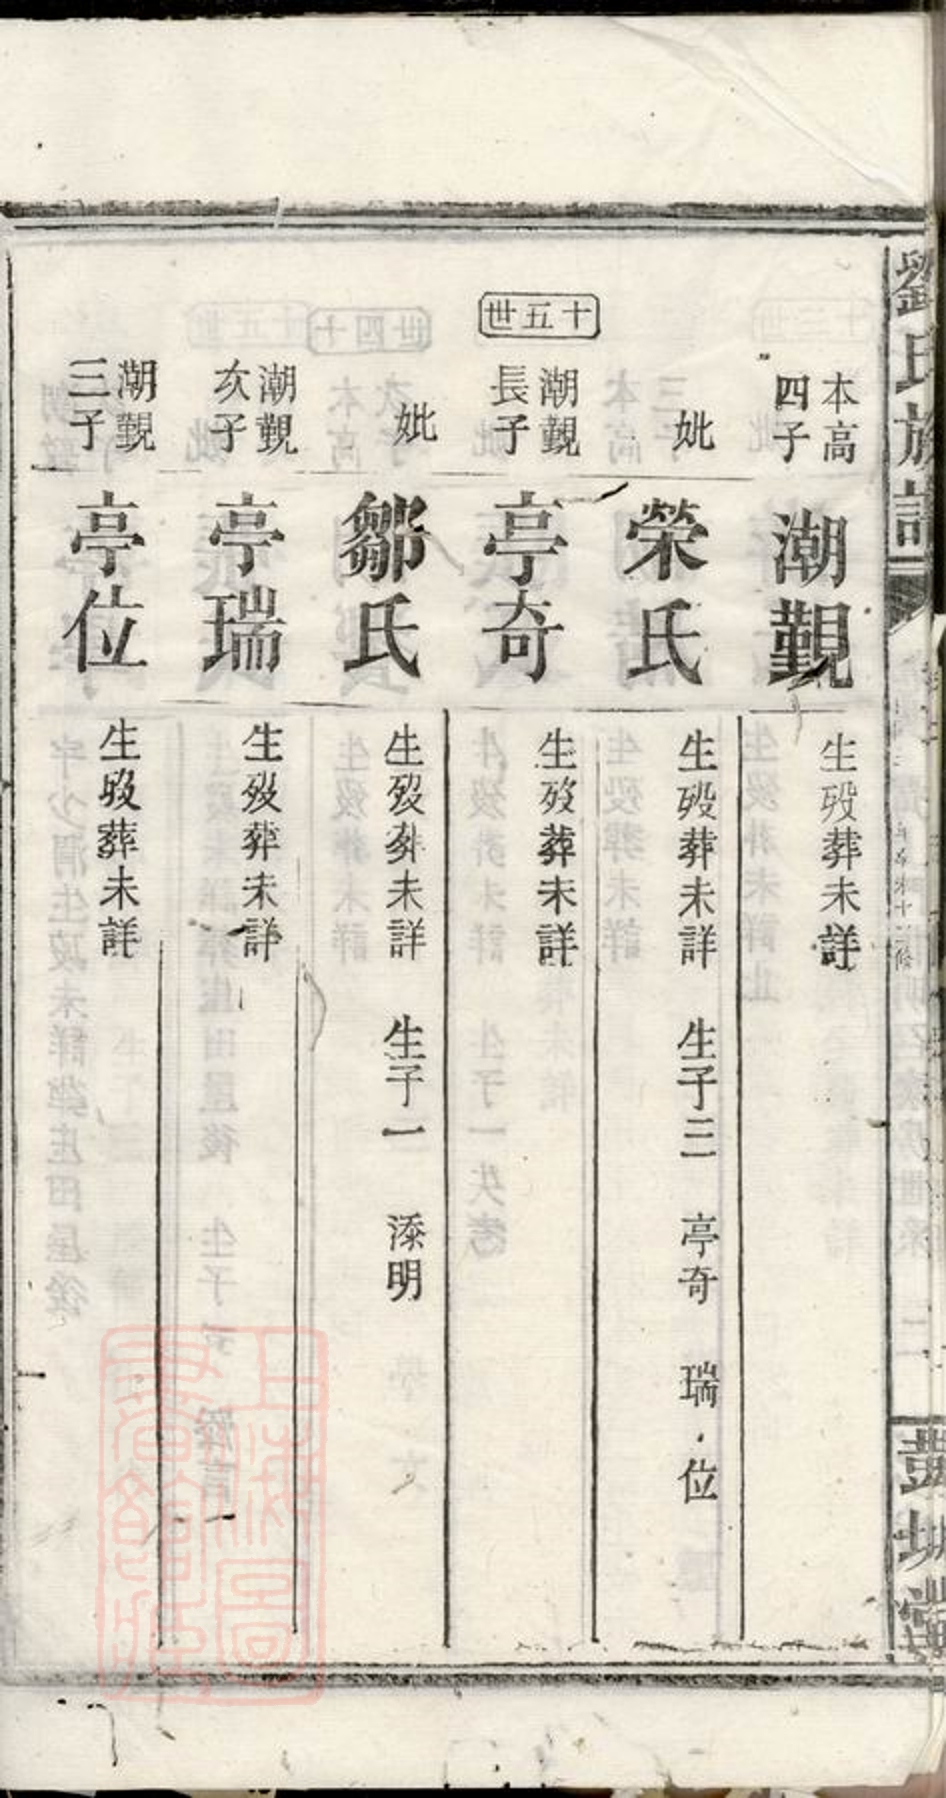 劉氏族譜
彭城堂
本高
四子
潮觀
生歿葬未詳
妣
榮氏
生歿葬未詳 生子三 亭奇 瑞 位
十五世
潮觀
長子
亭奇
生歿葬未詳
妣
鄒氏
生歿葬未詳 生子一 添明
潮觀
次子
亭瑞
生歿葬未詳
潮觀
三子
亭位
生歿葬未詳